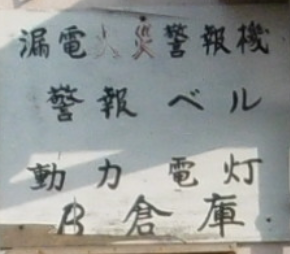 漏電火災警報機
警報ベル
動力 電灯
B倉庫.